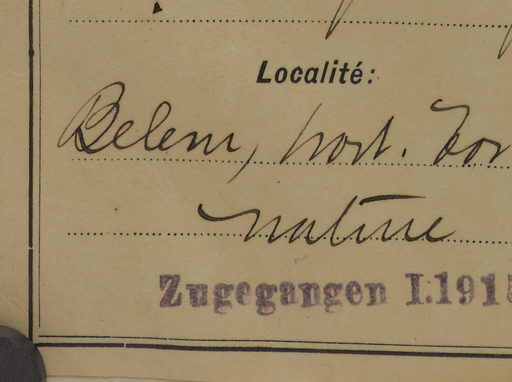 Localité:
Belem, hort. bor
nature
Zugegangen I.1915